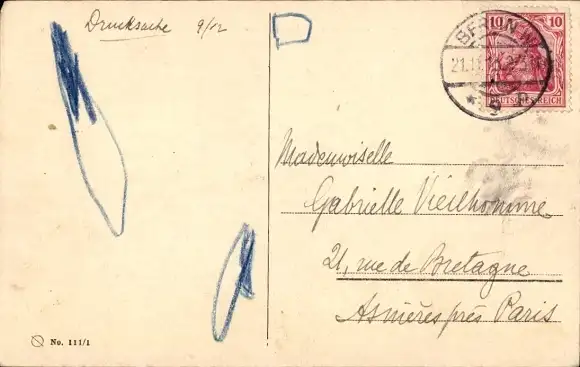 Drucksache 9/12
10 10
DEUTSCHES REICH
BERLIN W.
Mademoiselle
Gabrielle Vieilhomme
21, rue de Bretagne
Asnières près Paris
No. 111/1